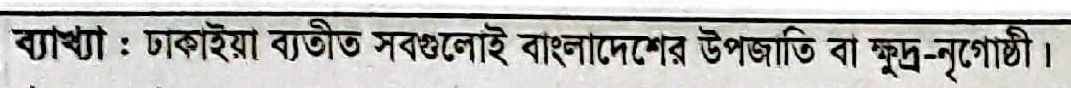 ব্যাখ্যা : ঢাকাইয়া ব্যতীত সবগুলোই বাংলাদেশের উপজাতি বা ক্ষুদ্র-নৃগোষ্ঠী।